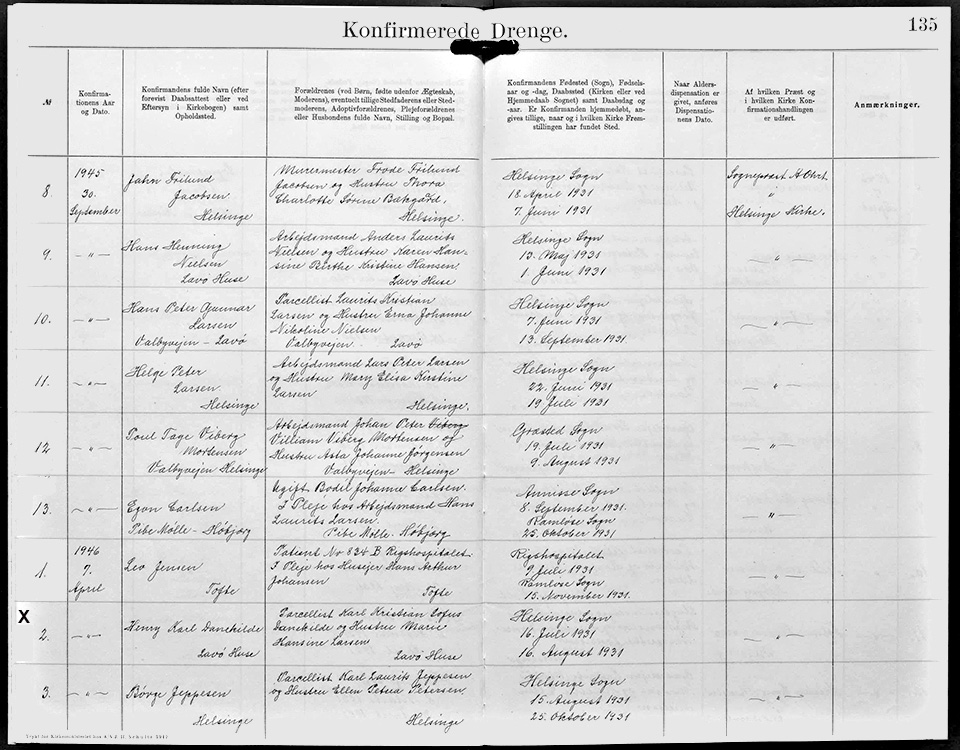 135
Konfirmerede Drenge.
№
Konfirma-
tionens Aar
og Dato.
Konfirmandens fulde Navn (efter
forevist Daabsattest eller ved
Eftersyn i Kirkebogen) samt
Opholdssted.
Forældrenes (ved Børn, fødte udenfor Ægteskab,
Moderens), eventuelt tillige Stedfaderens eller Sted-
moderens, Adoptivforældrenes, Plejeforældrenes
eller Husbondens fulde Navn, Stilling og Bopæl.
Konfirmandens Fødested (Sogn), Fødsels-
aar og -dag, Daabssted (Kirken eller ved
Hjemmedaab Sognet) samt Daabsdag og
-aar. Er Konfirmanden hjemmedøbt, an-
gives tillige, naar og i hvilken Kirke Frem-
stillingen har fundet Sted.
Naar Alders-
dispensation er
givet, anføres
Dispensatio-
nens Dato.
Af hvilken Præst og
i hvilken Kirke Kon-
firmationshandlingen
er udført.
Anmærkninger.
8.
1945
30.
September
Jahn Frilund
Jacobsen
Helsinge
Murermester Frode Frilund
Jacobsen og Hustru Thora
Charlotte Sørine Bakgård,
Helsinge.
Helsinge Sogn
18 April 1931
7. Juni 1931
Sognepræst
"
Helsinge Kirke.
9.
— " —
Hans Henning
Nielsen
Lavø Huse
Arbejdsmand Anders Laurits
Nielsen og Hustru Karen Han-
sine Birthe Kristine Hansen
Lavø Huse
Helsinge Sogn
13. Maj 1931
1. Juni 1931
— " —
10.
— " —
Hans Peter Gunnar
Larsen
Valbyvejen - Lavø
Parcellist Laurits Kristian
Larsen og Hustru Erna Johanne
Nikoline Nielsen
Valbyvejen - Lavø
Helsinge Sogn
7. Juni 1931
13. September 1931.
— " —
11.
— " —
Helge Peter
Larsen
Helsinge
Arbejdsmand Lars Peter Larsen
og Hustru Mary Elisa Kirstine
Larsen
Helsinge.
Helsinge Sogn
22. Juni 1931
19 Juli 1931
— " —
12
— " —
Poul Tage Viberg
Mortensen
Valbyvejen Helsinge
Arbejdsmand Johan Peter Viberg
Villiam Viberg Mortensen og
Hustru Asta Johanne Jørgensen
Valbyvejen - Helsinge
Græsted Sogn
19. Juli 1931
9. August 1931
— " —
13.
— " —
Egon Carlsen
Pibe Mølle - Høbjerg
Ugift Bodil Johanne Carlsen.
I Pleje hos Arbejdsmand Hans
Laurits Larsen.
Pibe Mølle. Høbjerg
Annisse Sogn
8. September 1931.
Ramløse Sogn
25. Oktober 1931
— " —
1.
1946
7.
April
Leo Jensen
Tofte
Patient No 834 B Rigshospitalet
I Pleje hos Husejer Hans Arthur
Johansen
Tofte
Rigshospitalet
9 Juli 1931
Ramløse Sogn
15. November 1931.
— " —
X
2.
— " —
Henry Karl Danekilde
Lavø Huse
Parcellist Karl Kristian Sofus
Danekilde og Hustru Marie
Hansine Larsen
Lavø Huse
Helsinge Sogn
16. Juli 1931
16. August 1931
— " —
3.
— " —
Børge Jeppesen
Helsinge
Parcellist Karl Laurits Jeppesen
og Hustru Ellen Petrea Petersen.
Helsinge
Helsinge Sogn
15. August 1931
25. Oktober 1931
— " —